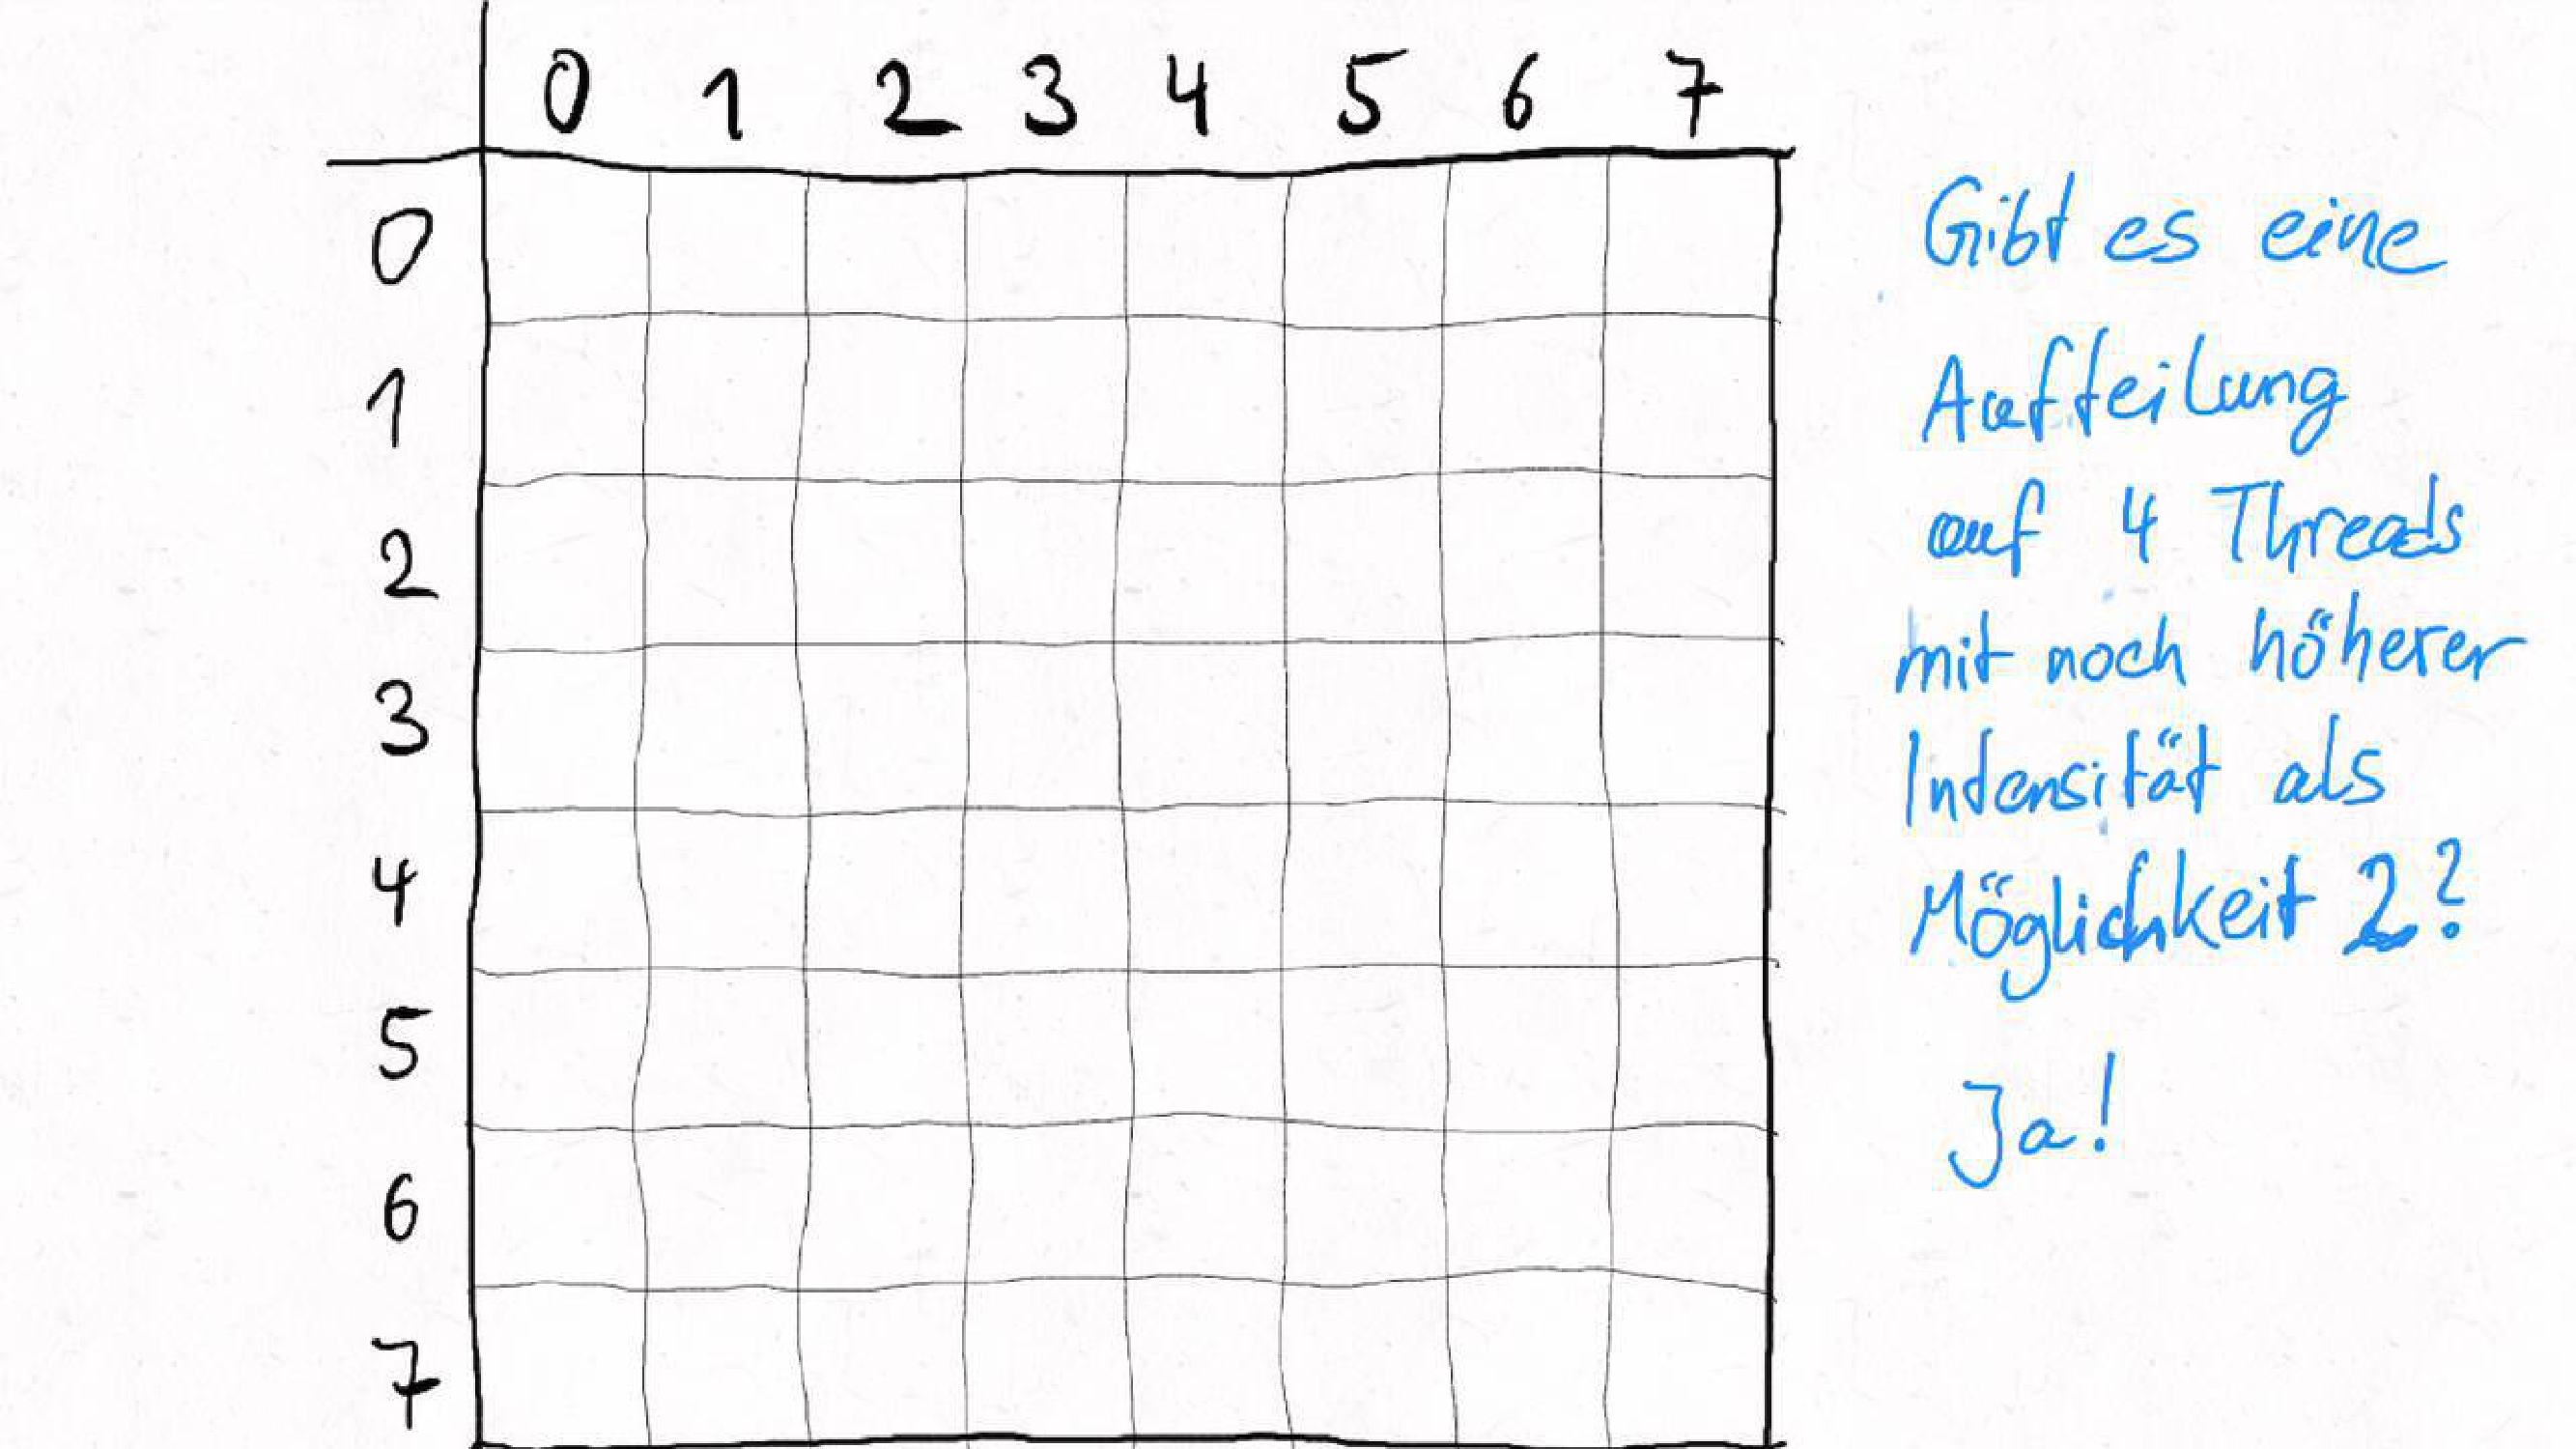 0 1 2 3 4 5 6 7
0
1
2
3
4
5
6
7
Gibt es eine
Aufteilung
auf 4 Threads
mit noch höherer
Intensität als
Möglichkeit 2?
Ja!